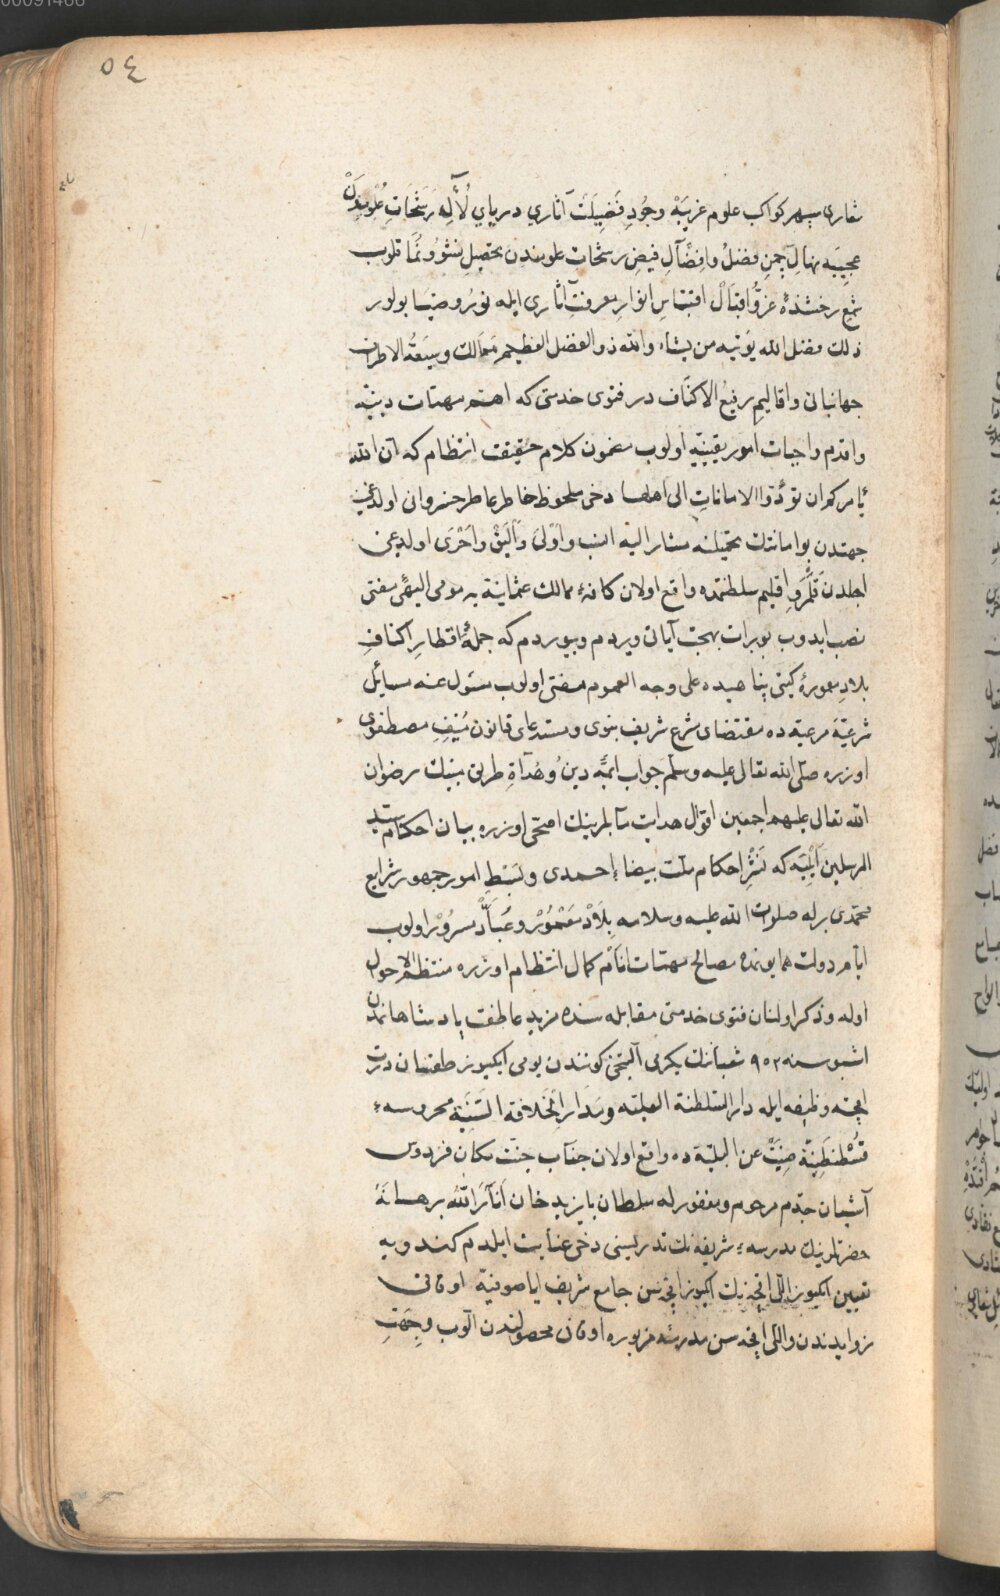 00091466
٥٤
شعاری سپهر کواکب علوم غریبه وجود فضیلت آثاری دریای لآله رشحات علومندن
عجیبه نهال چمن فضل وافضال فیض رشحات علومندن تحصیل نشو ونما قلوب
شمع رخشندهٔ عز واقبال اقتباس انوار معرفت آثاری ایله نور وضیا بولور
ذلك فضل الله یؤتیه من یشاء والله ذو الفضل العظیم ممالك وسیعة الاطراف
جهانبانی واقالیم رفیع الاکناف در فتوی خدمتی که اهم مهمات دینیه
واقدم واجبات امور یقینیه اولوب مضمون کلام حقیقت انتظام که ان الله
یأمرکم ان تؤدوا الامانات الی اهلها دخی ملحوظ خاطر عاطر خسروانی اولدیغی
جهتدن بو امانتك تحمیلنه مشار الیه انسب واولی والیق واحری اولدیغی
اجلدن قلمرو اقلیم سلطنتمده واقع اولان کافهٔ ممالك عثمانیة یه مومی الیهی مفتی
نصب ایدوب بو برات بهجت آیاتی ویردم وبیوردم که جملهٔ اقطار اکناف
بلاد معمورهٔ کیتی پناهیده علی وجه العموم مفتی اولوب مسئول عنه مسائل
شرعیّهٔ مرعیه ده مقتضای شرع شریف نبوی ومستدعای قانون منیف مصطفوی
اوزره صلی الله تعالی علیه وسلم جواب ایمهٔ دین وهداة طریق مبینك رضوان
الله تعالی علیهم اجمعین اقوال هدایت مآللرینك اصحی اوزره بیان احکام سید
المرسلین ایلیه که نشر احکام ملت بیضاء احمدی وبسط امور جمهور شرایع
محمدی برله صلوات الله علیه وسلامه بلاد معمور وعباد مسرور اولوب
ایام دولت همایونمده مصالح مهمات انام کمال انتظام اوزره منتظم الاحوال
اوله وذکر اولنان فتوی خدمتی مقابله سنده مزید عاطفت پادشاهانمدن
اشبو سنه ٩٥٢ شعبانك یکرمی التنجی کونندن یومی ایکیوز طقسان درت
اقچه وظیفه ایله دار السلطنة العلیه ومدار الخلافة السنیه محروسهٔ
قسطنطینیة صینت عن البلیّة ده واقع اولان جناب جنت مکان فردوس
آشیان جدم مرحوم ومغفور له سلطان بایزید خان انار الله برهانه
حضرتلرینك مدرسهٔ شریفه نك تدریسنی دخی عنایت ایلدم کندویه
تعیین ایکیوز اللی اقچه نك ایکیوز اقچه سن جامع شریف ایاصوفیة اوقافی
زوایدندن واللی اقچه سن مدرسه مزبوره اوقافی محصولندن آلوب وجهت